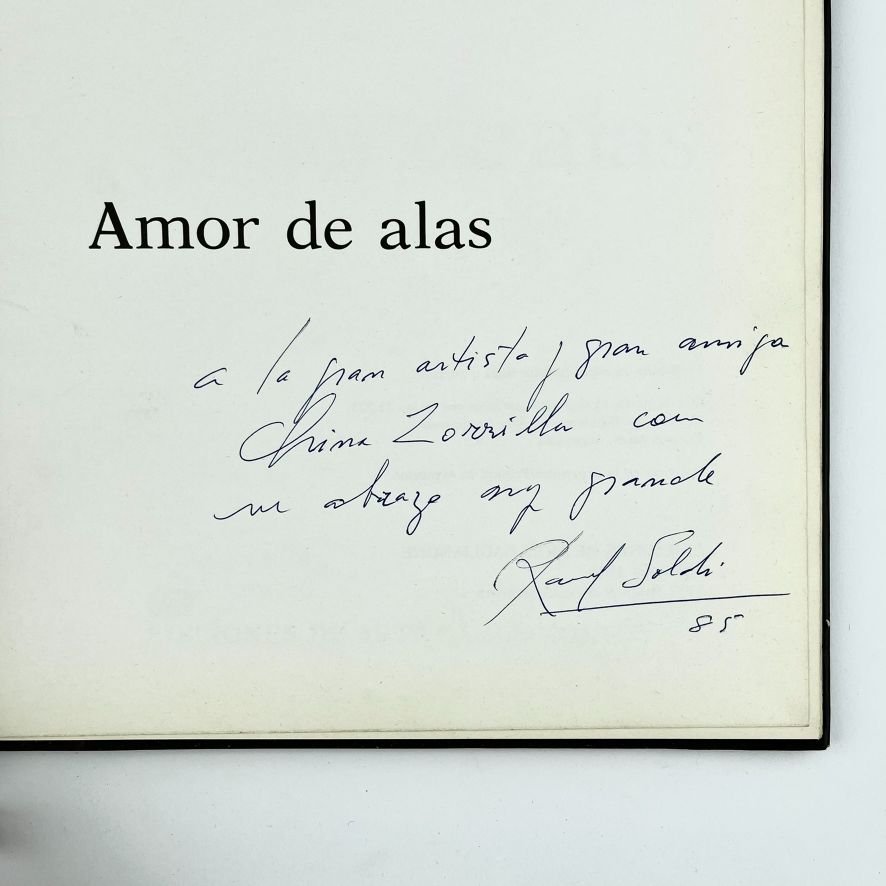 Amor de alas
a la gran artista y gran amiga
China Zorrilla con
un abrazo muy grande
Raul Soldi
85